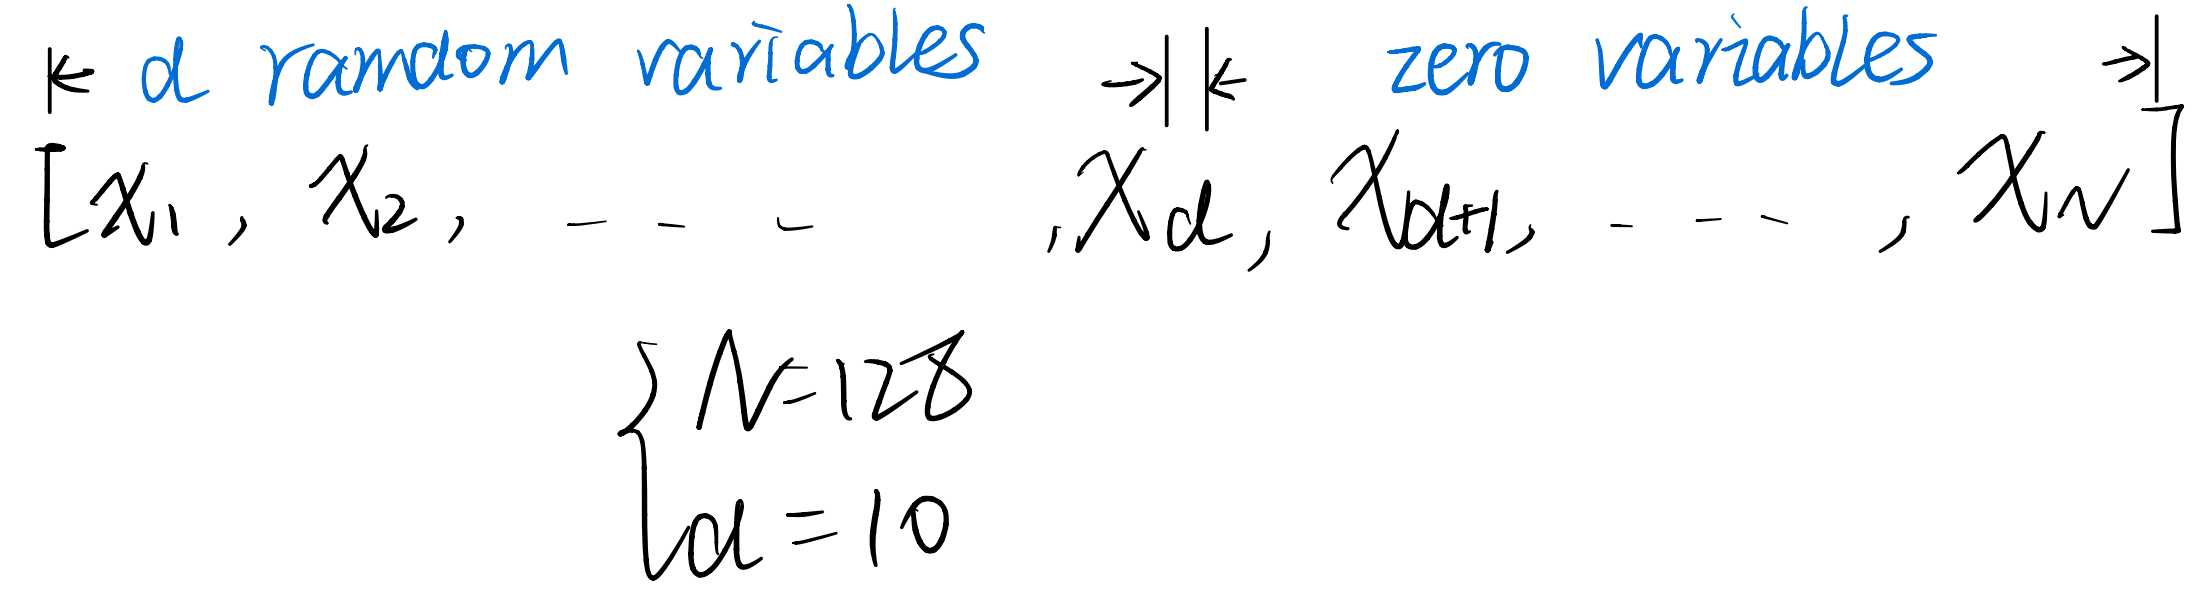 d ramdom variables zero variables
[x₁, x₂, - - - , x_d, x_{d+1}, - - - , x_N]
{ N=128
d=10